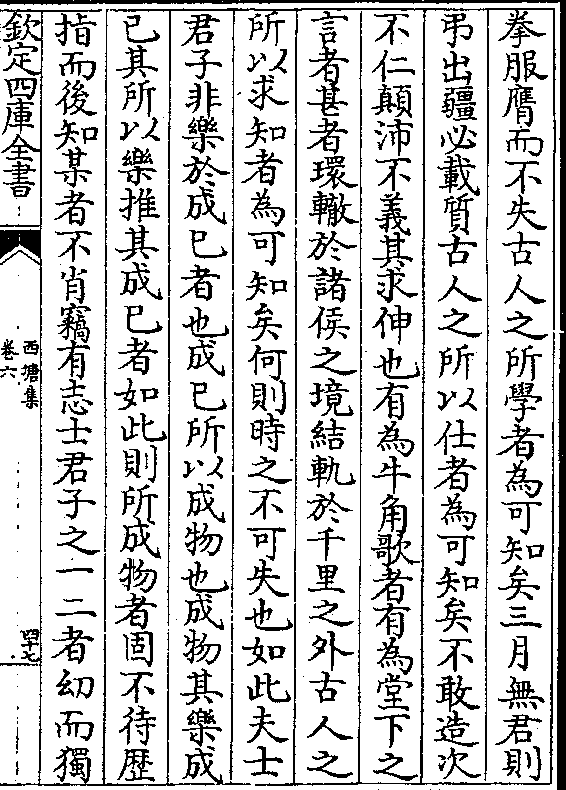 拳服膺而不失古人之所學者為可知矣三月無君則
弔出疆必載質古人之所以仕者為可知矣不敢造次
不仁顛沛不義其求伸也有為牛角歌者有為堂下之
言者甚者環轍於諸侯之境結軌於千里之外古人之
所以求知者為可知矣何則時之不可失也如此夫士
君子非樂於成已者也成已所以成物也成物其樂成
已其所以樂推其成已者如此則所成物者固不待歴
指而後知某者不肖竊有志士君子之一二者幻而獨
欽定四庫全書
西塘集
卷六
四十七